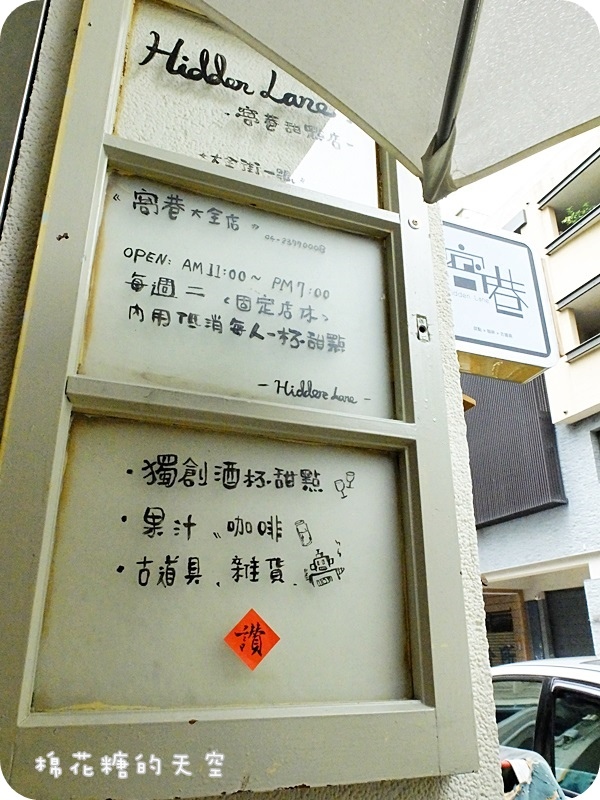 Hidden Lane
- 窩巷甜點店 -
大全街一號
《窩巷大全店》
OPEN: AM 11:00 ~ PM 7:00
每週二 <固定店休>
內用低消每人一杯甜點
- Hidden Lane -
• 獨創酒杯甜點
• 果汁、咖啡
• 古道具、雜貨
讚
窩巷
hidden lane
棉花糖的天空